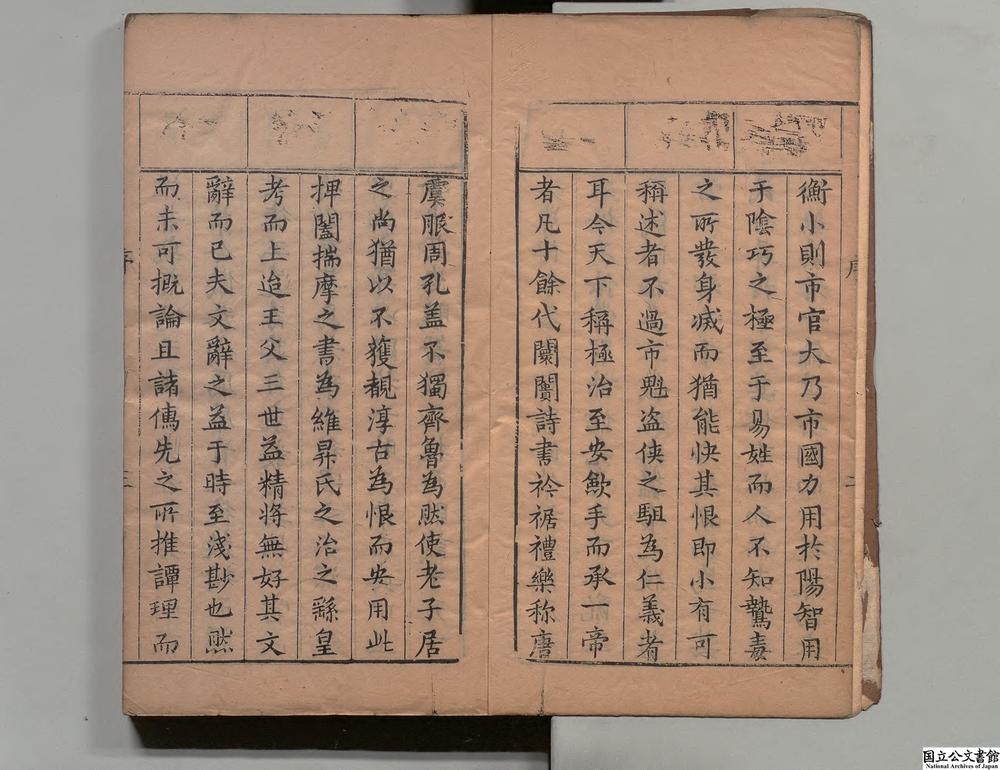 衡小則市官大乃市國力用於陽智用
于陰巧之極至于易姓而人不知鷙毒
之所發身滅而猶能快其恨即小有可
稱述者不過市魁盗俠之駔為仁義者
耳今天下稱極治至安歛手而承一帝
者凡十餘代闤闠詩書衿裾禮樂称唐
虞服周孔盖不獨齊魯為然使老子居
之尚猶以不獲覩淳古為恨而安用此
捭闔揣摩之書為維昇氏之治之繇皇
考而上迨王父三世益精将無好其文
辭而已夫文辭之益于時至浅尠也然
而未可概論且諸儁先之所推譚理而
序
二
序
三
国立公文書館
National Archives of Japan